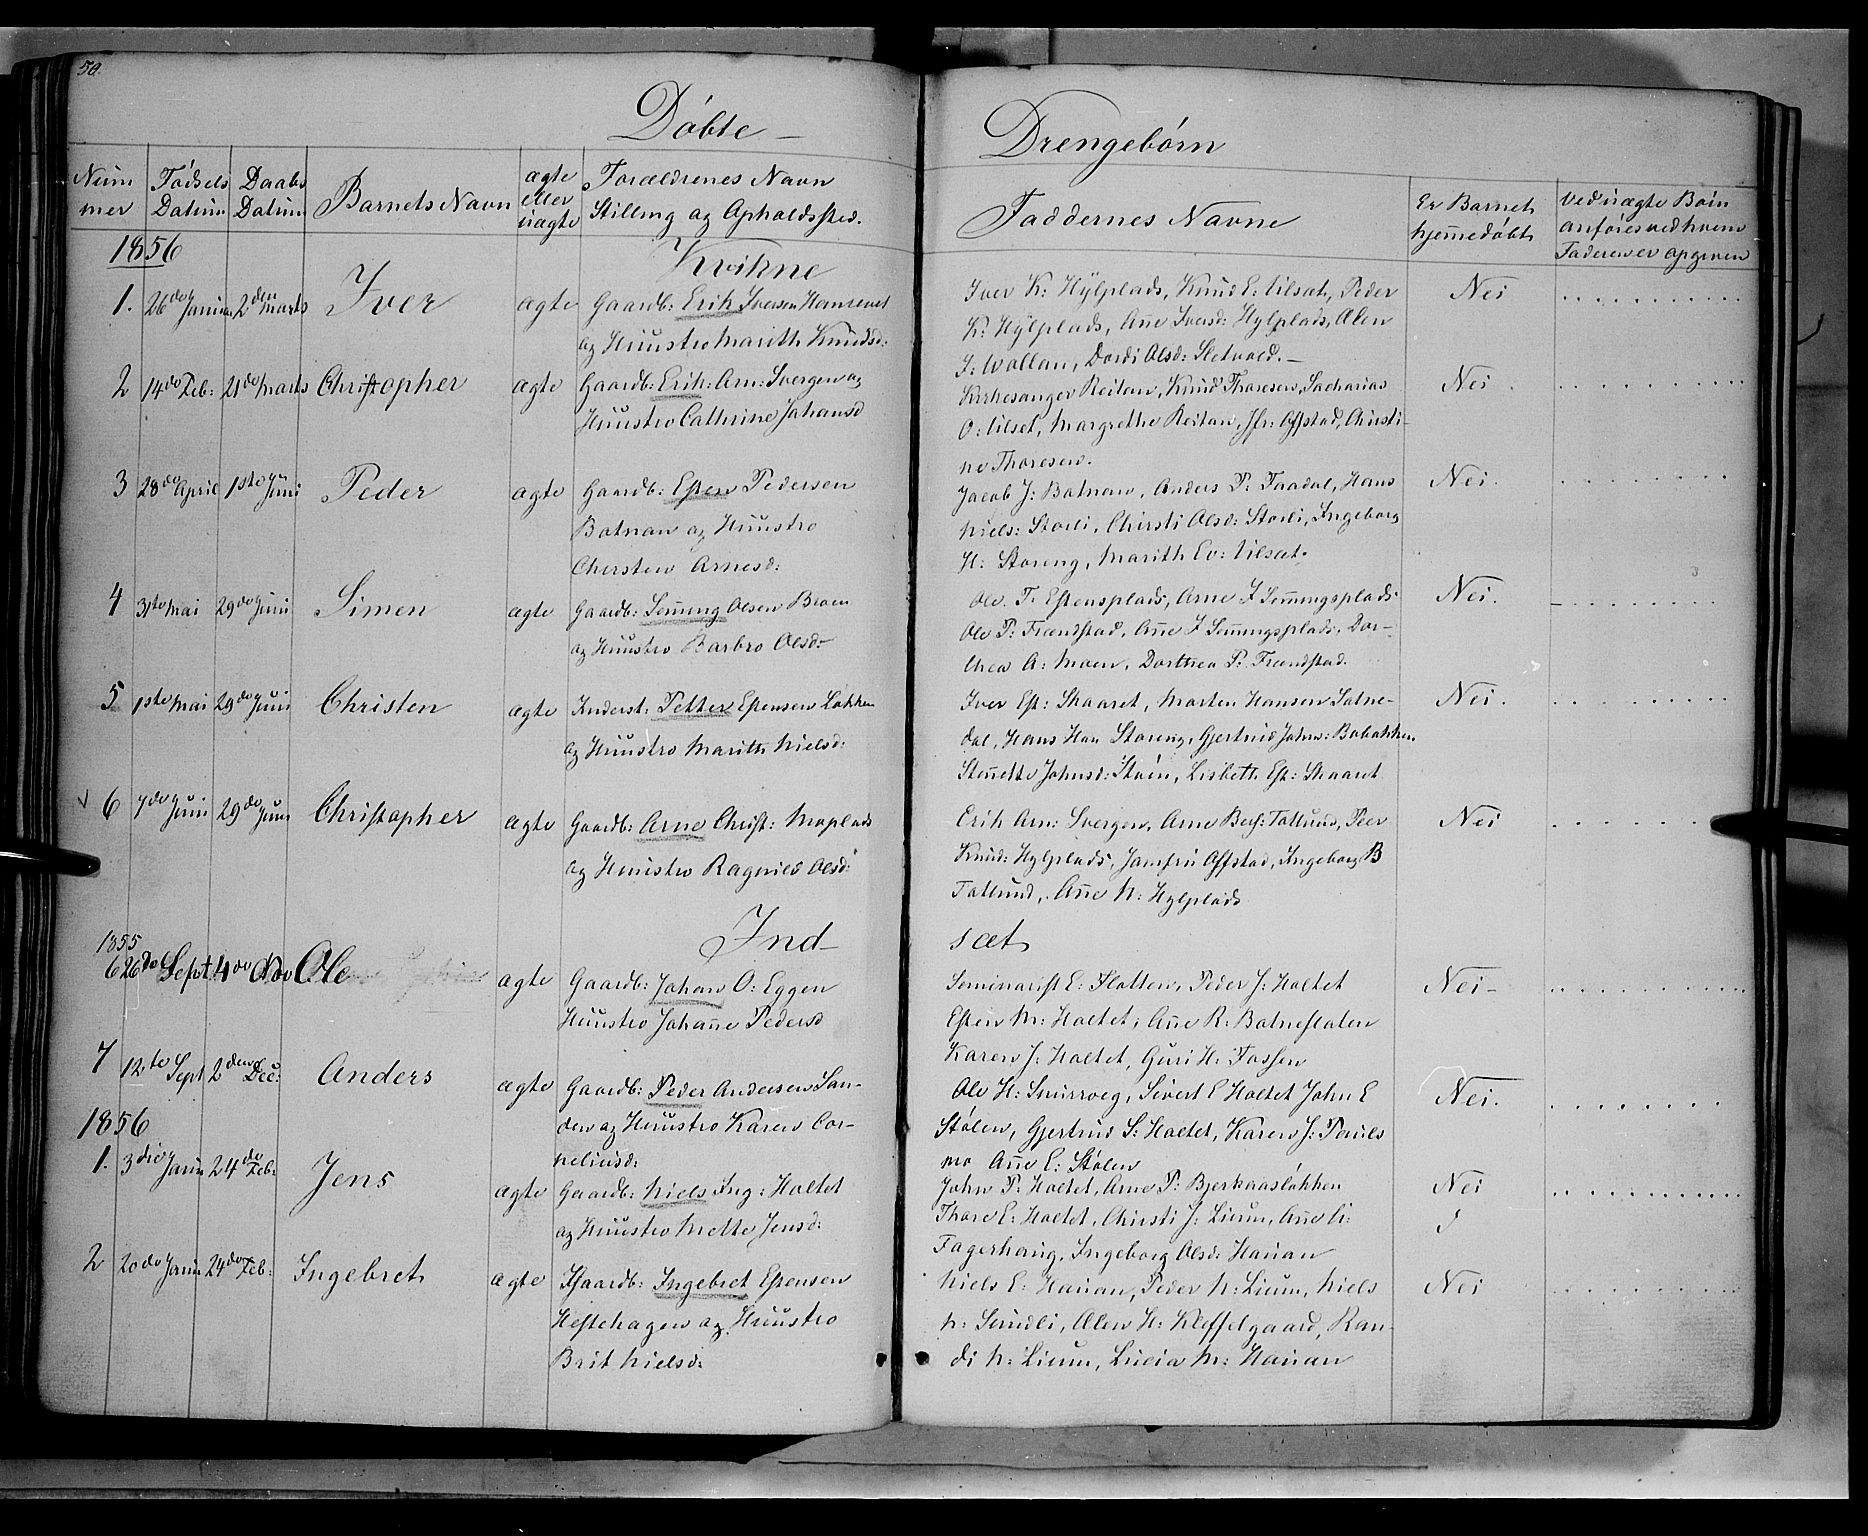 50.
Døbte – Drengebørn
Num
mer
Fødsels
Datum
Daabs
Datum
Barnets Navn
ægte
eller
uægte
Forældrenes Navn
Stilling og Opholdssted.
Faddernes Navne
Er Barnet
hjemmedøbt
Ved uægte Børn
anføres ved hvem
Faderen er opgiven
1856
Kvikne
1. 26de Januar 2den Marts Iver ægte Gaardb: Erik Iversen
og Huustro Marith Knudsd:
Iver K: Hylplads, Knud E: Ulsæt, Peder
K: Hylplads, Ane Iversd: Hylplads, Olen
J: Vollan, Dordi Olsd: Sletvold. –
Nei . . . . . . . . . . . .
2 14de Feb: 21de Marts Christopher ægte Gaardb: Erik: Arn: Svergen og
Huustro Cathrine Johansd
Kirkesanger Reitan, Knud Thoresen, Sacharias
O: Ulset, Margrethe Reitan, Jfr: Offstad, Christi-
ne Thoresen.
Nei . . . . . . . . . . . .
3 28de April 1ste Juni Peder ægte Gaardb: Esten Pedersen
Botnan og Huustro
Chersten Arnesd:
Jacob J: Botnan, Anders P: Faadal, Hans
Niels: Storli, Chirsti Olsd: Storli, Ingeborg
H: Storeng, Marith Ev: Ulsæt.
Nei. . . . . . . . . . .
4 3die Mai 29de Juni Simen ægte Gaardb: Semming Olsen Broen
og Huustro Barbro Olsd:
Ole. T. Estensplads, Arne J Semmingsplads
Ole P: Frændstad, Ane J Semmingsplads, Dor-
thea A: Moen, Dorthea P: Frændstad.
Nei. . . . . . . . . .
5 1ste Mai 29de Juni Christen ægte Inderst: Petter Estensen Løkken
og Huustro Marith Nielsd:
Iver Est: Skaaret, Morten Hansen Satne-
dal, Hans Han Storeng, Gjertrud Johns:
Stenette Johnsd: Støen, Lisbeth Est: Skaaret
Nei. . . . . . . . . .
6 7de Juni 29de Juni Christopher ægte Gaardb: Arne Christ: Moplads
og Huustro Ragnild Olsd:
Erik Arn: Svergen, Arne Ber: Fatlund, Peer
Knud: Hylplads, Jomfru Offstad, Ingeborg B
Fatlund, Ane N: Hylplads
Nei . . . . . . . .
Ind– sæt
1855
6 26de Sept 4de Nov Ole ægte Gaardb: Johan O: Eggen
Huustro Johane Pedersd
Seminarist E: Slotten, Peder J: Holtet
Esten M: Holtet, Ane R: Botnestølen
Karen J: Holtet, Guri H: Fossen
Nei– . . . . . . . . . . .
7 12te Sept 2den Dec: Anders ægte Gaardb: Peder Andersen San-
den og Huustro Karen Cor-
neliusd:
Ole H: Snurroeg, Sivert E Holtet John E
Stølen, Gjertrud S: Holtet, Karen J: Pauls
mo Ane E: Stølen
Nei. . . . . . . . .
1856
1. 3die Janu 24de Feb: Jens ægte Gaardb: Niels Ing: Holtet
og Huustro Mette Jensd:
John P: Holtet, Arne P: Bjerkaasløkken
Thore E: Holtet, Chirsti J: Lium, Ane
Fagerhaug, Ingeborg Olsd: Hauan
Nei . . . . . . . . . . .
2 20de Janu 24de Feb: Ingebret ægte Gaardb: Ingebret Estensen
Hestehagen og Huustro
Brit Nielsd:
Niels E: Hauan, Peder N: Lium, Niels
N: Smedli, Olen H: Kleffelgaard, Ran-
di N: Lium, Lucia M: Hauan
Nei . . . . . . . . . . .